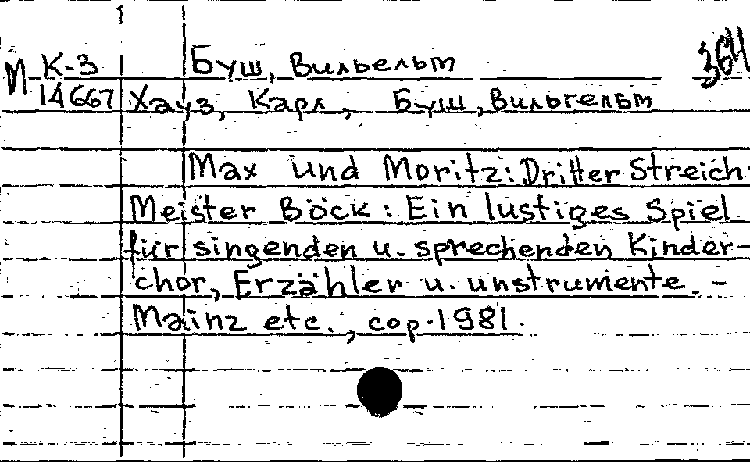 М К-3 Буш, Вильельм 364
14667 Хауз, Карл, Буш, Вильгельм
Max und Moritz: Dritter Streich.
Meister Böck: Ein lustiges Spiel
für singenden u. sprechenden Kinder-
chor, Erzähler u. unstrumente. -
Mainz etc., cop. 1981.